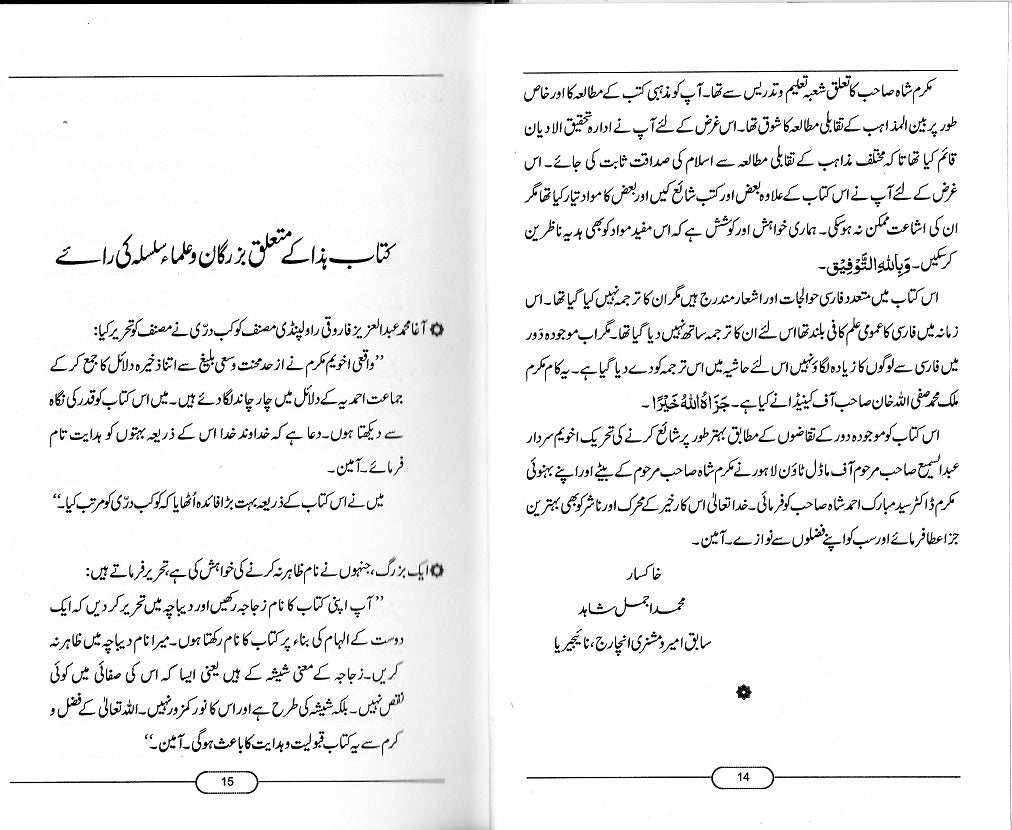 مکرم شاہ صاحب کا تعلق شعبہ تعلیم و تدریس سے تھا۔ آپ کو مذہبی کتب کے مطالعہ کا اور خاص
طور پر بین المذاہب کے تقابلی مطالعہ کا شوق تھا۔ اس غرض کے لئے آپ نے ادارہ تحقیق الادیان
قائم کیا تھا تا کہ مختلف مذاہب کے تقابلی مطالعہ سے اسلام کی صداقت ثابت کی جائے۔ اس
غرض کے لئے آپ نے اس کتاب کے علاوہ بعض اور کتب شائع کیں اور بعض کا مواد تیار کیا تھا مگر
ان کی اشاعت ممکن نہ ہو سکی۔ ہماری خواہش اور کوشش ہے کہ اس مفید مواد کو بھی ہدیہ ناظرین
کر سکیں۔ وَبِاللّٰهِ التَّوْفِيْق۔
اس کتاب میں متعدد فارسی حوالجات اور اشعار مندرج ہیں مگر ان کا ترجمہ نہیں کیا گیا تھا۔ اس
زمانہ میں فارسی کا عمومی علم کافی بلند تھا اس لئے ان کا ترجمہ ساتھ نہیں دیا گیا تھا۔ مگر اب موجودہ دَور
میں فارسی سے لوگوں کا زیادہ لگاؤ نہیں اس لئے حاشیہ میں اس ترجمہ کو دے دیا گیا ہے۔ یہ کام مکرم
ملک محمد صفی اللہ خان صاحب آف کینیڈا نے کیا ہے۔ جَزَاهُ اللّٰهُ خَيْرًا۔
اس کتاب کو موجودہ دور کے تقاضوں کے مطابق بہتر طور پر شائع کرنے کی تحریک اخویم سردار
عبدالسمیع صاحب مرحوم آف ماڈل ٹاؤن لاہور نے مکرم شاہ صاحب مرحوم کے بیٹے اور اپنے بہنوئی
مکرم ڈاکٹر سید مبارک احمد شاہ صاحب کو فرمائی۔ خدا تعالیٰ اس کارخیر کے محرک اور ناشر کو بھی بہترین
جزا عطا فرمائے اور سب کو اپنے فضلوں سے نوازے۔ آمین۔
خاکسار
محمد اجمل شاہد
سابق امیر و مشنری انچارج، نائیجیریا
14
کتاب ہذا کے متعلق بزرگان و علماء سلسلہ کی رائے
آغا محمد عبدالعزیز فاروقی راولپنڈی مصنف کوکب درّی نے مصنف کو تحریر کیا:
’’واقعی اخویم مکرم نے از حد محنت و سعی بلیغ سے اتنا ذخیرہ دلائل کا جمع کر کے
جماعت احمدیہ کے دلائل میں چار چاند لگا دئے ہیں۔ میں اس کتاب کو قدر کی نگاہ
سے دیکھتا ہوں۔ دعا ہے کہ خداوند خدا اس کے ذریعہ بہتوں کو ہدایت تام
فرمائے۔ آمین۔
میں نے اس کتاب کے ذریعہ بہت بڑا فائدہ اُٹھایا کہ کوکب درّی کو مرتب کیا۔‘‘
ایک بزرگ، جنہوں نے نام ظاہر نہ کرنے کی خواہش کی ہے، تحریر فرماتے ہیں:
’’آپ اپنی کتاب کا نام زجاجہ رکھیں اور دیباچہ میں تحریر کر دیں کہ ایک
دوست کے الہام کی بناء پر کتاب کا نام رکھتا ہوں۔ میرا نام دیباچہ میں ظاہر نہ
کریں۔ زجاجہ کے معنی شیشہ کے ہیں یعنی ایسا کہ اس کی صفائی میں کوئی
نقص نہیں۔ بلکہ شیشہ کی طرح ہے اور اس کا نور کمزور نہیں۔ اللہ تعالیٰ کے فضل و
کرم سے یہ کتاب قبولیت و ہدایت کا باعث ہوگی۔ آمین۔‘‘
15